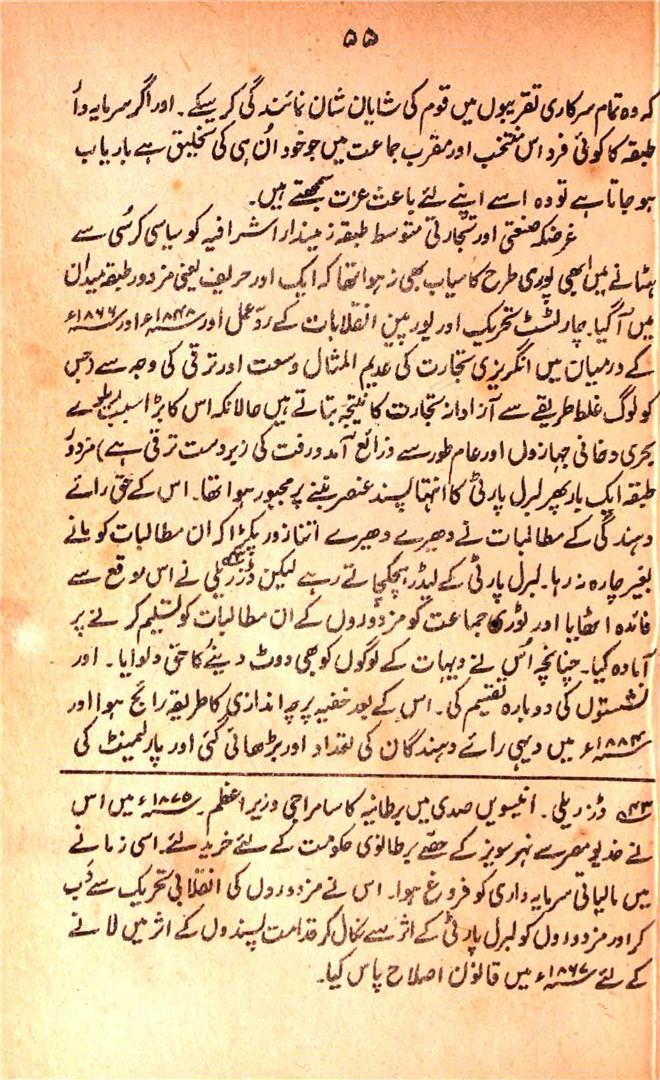 ۵۵
کہ وہ تمام سرکاری تقریبوں میں قوم کی شایان شان نمائندگی کر سکے۔ اور اگر سرمایہ دار
طبقہ کا کوئی فرد اس منتخب اور مقرب جماعت میں جو خود اُن ہی کی تخلیق ہے باریاب
ہو جاتا ہے تو وہ اسے اپنے لئے باعث عزت سمجھتے ہیں۔
غرضکہ صنعتی اور تجارتی متوسط طبقہ زمیندار اشرافیہ کو سیاسی کرسی سے
ہٹانے میں ابھی پوری طرح کامیاب بھی نہ ہوا تھا کہ ایک اور حریف یعنی مزدور طبقہ میدان
میں آ گیا۔ چارٹسٹ تحریک اور یورپین انقلابات کے ردّعمل اور ۱۸۴۸ء اور ۱۸۶۶ء
کے درمیان میں انگریزی تجارت کی عدیم المثال وسعت اور ترقی کی وجہ سے (جس
کو لوگ غلط طریقے سے آزادانہ تجارت کا نتیجہ بتاتے ہیں حالانکہ اس کا بڑا سبب ریلوے
بحری دخانی جہازوں اور عام طور سے ذرائع آمد ورفت کی زبردست ترقی ہے) مزدور
طبقہ ایک بار پھر لبرل پارٹی کا انتہا پسند عنصر بننے پر مجبور ہوا تھا۔ اس کے حق رائے
دہندگی کے مطالبات نے دھیرے دھیرے اتنا زور پکڑا کہ ان مطالبات کو مانے
بغیر چارہ نہ رہا۔ لبرل پارٹی کے لیڈر ہچکچاتے رہے لیکن ڈزریلی۴۳ نے اس موقع سے
فائدہ اٹھایا اور ٹوری جماعت کو مزدوروں کے ان مطالبات کو تسلیم کرنے پر
آمادہ کیا۔ چنانچہ اُس نے دیہات کے لوگوں کو بھی ووٹ دینے کا حق دلوایا۔ اور
نشستوں کی دوبارہ تقسیم کی۔ اس کے بعد خفیہ پرچہ اندازی کا طریقہ رائج ہوا اور
۱۸۸۴ء میں دیہی رائے دہندگان کی تعداد اور بڑھائی گئی اور پارلیمنٹ کی
۴۳ ڈزریلی۔ انیسویں صدی میں برطانیہ کا سامراجی وزیر اعظم۔ ۱۸۷۵ء میں اس
نے خدیو مصر سے نہر سویز کے حصے برطانوی حکومت کے لئے خرید لئے۔ اسی زمانے
میں مالیاتی سرمایہ داری کو فروغ ہوا۔ اس نے مزدوروں کی انقلابی تحریک سے دَب
کر اور مزدوروں کو لبرل پارٹی کے اثر سے نکال کر قدامت پسندوں کے اثر میں لانے
کے لئے ۱۸۶۷ء میں قانون اصلاح پاس کیا۔